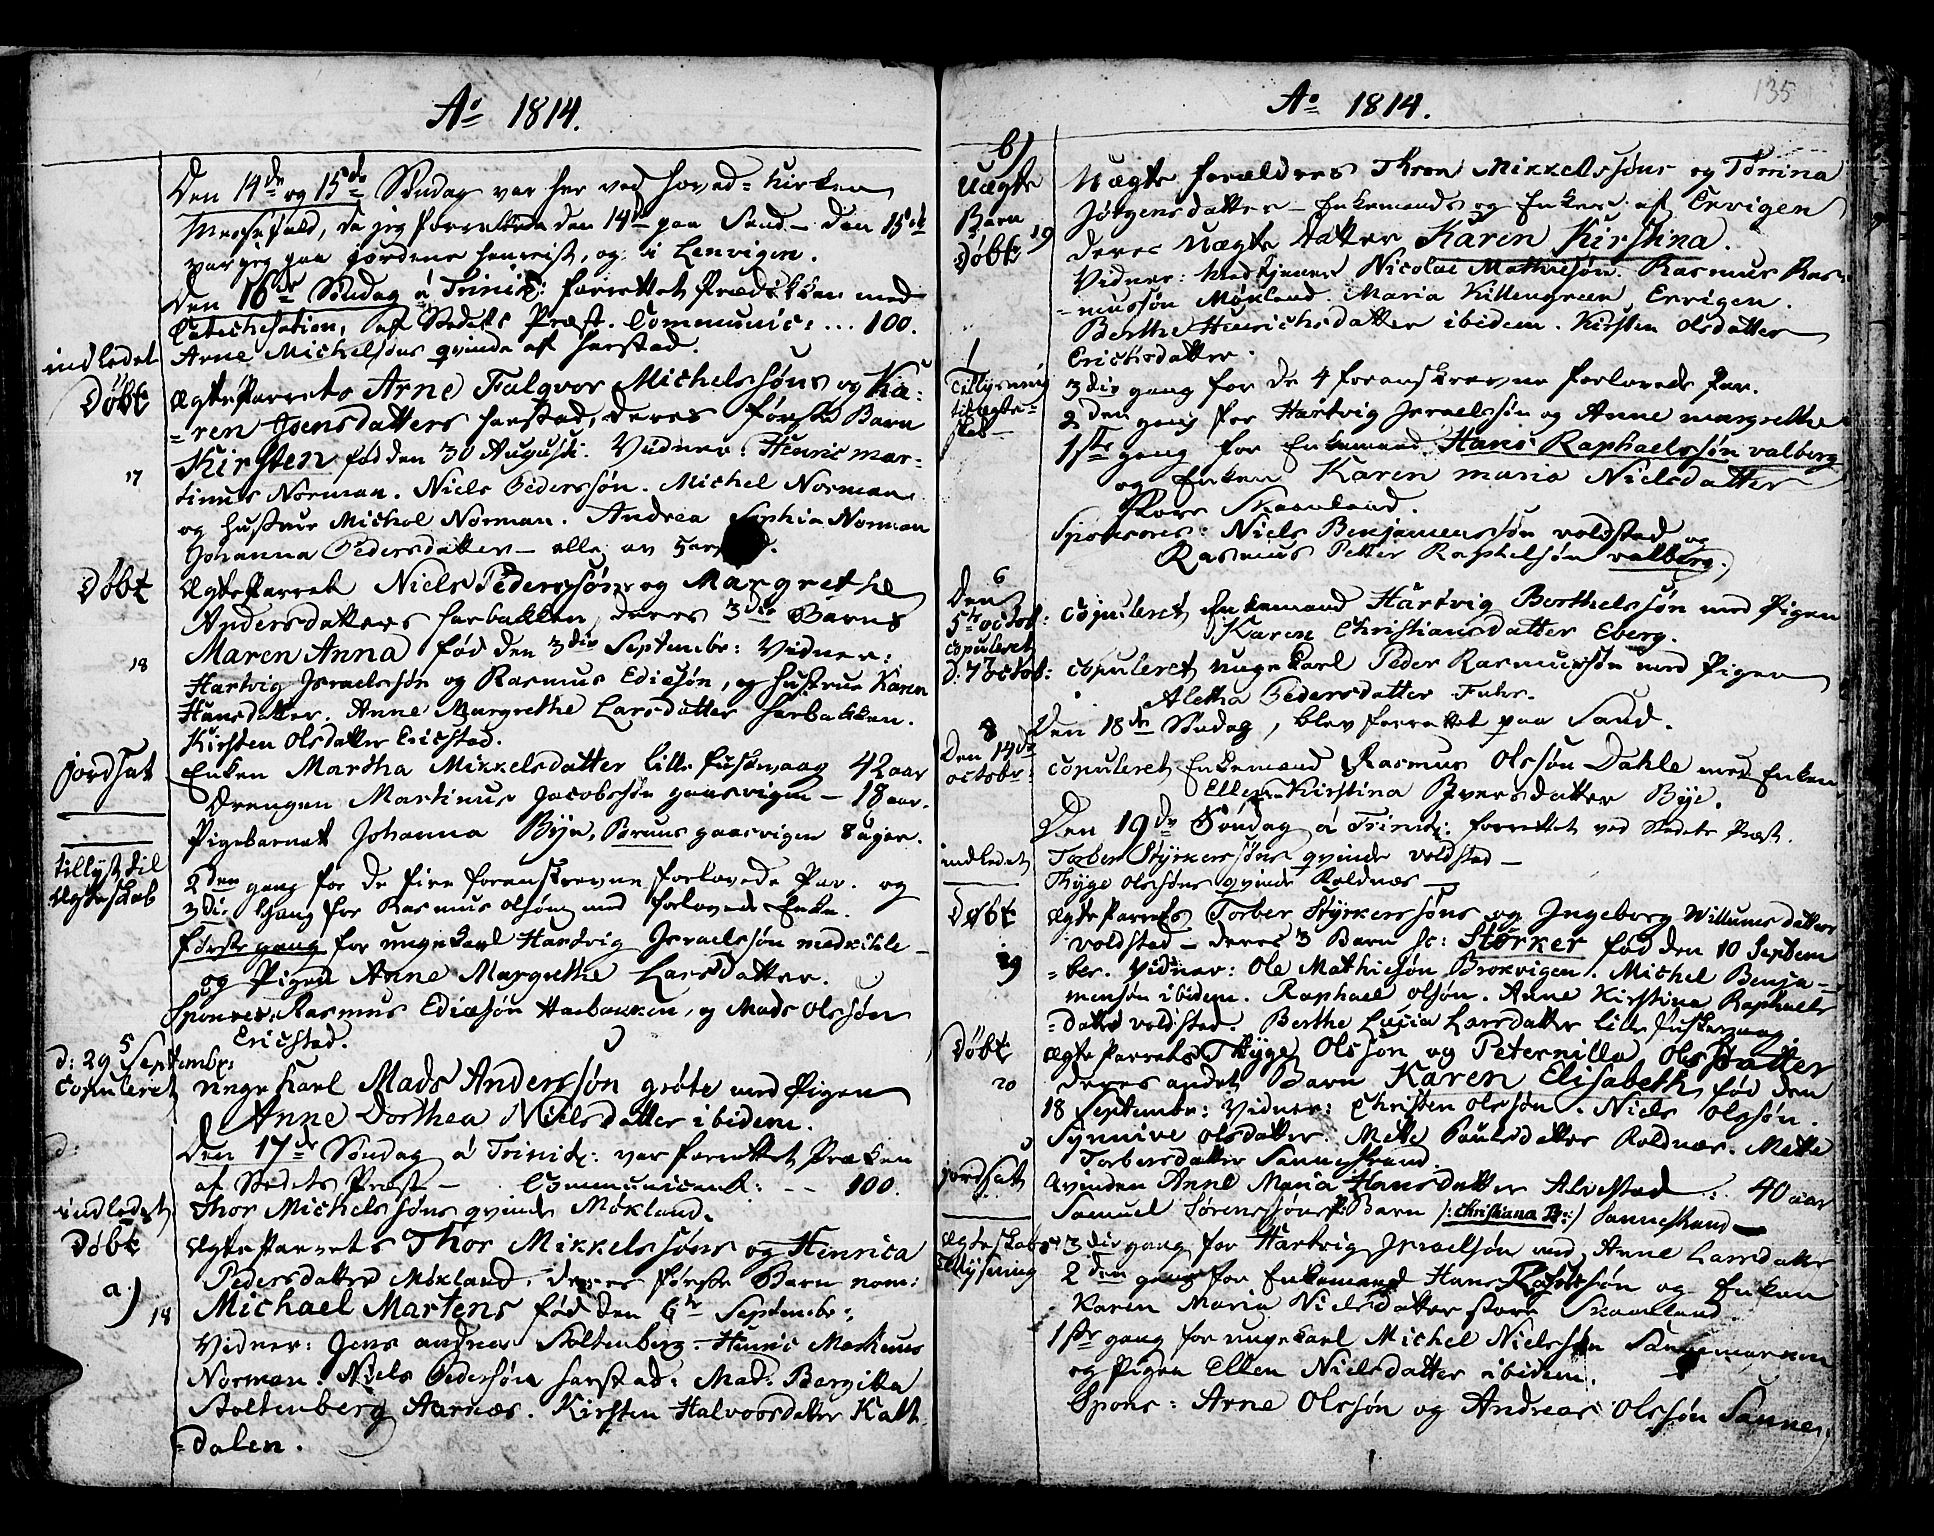 Ao 1814.
Den 14de og 15de Søndag var her ved Hoved-Kirken
Messefald, da jeg forrettede den 14de paa Sand - den 15de
var jeg paa Jordene henreist, og i Lenvigen.
Den 16de Søndag á Trinit: forrettet Prædiken med
Catechisation, af Stedets Præst. Communic: ... 100.
indledet
Arne Michelsøns qvinde af Harstad.
Døbt
ÆgteParrets Arne Falqvor Michelssøns og Ka-
-ren Joensdatters Harstad, deres første Barn
17
Kirsten fød den 30 Augusti. Vidner: Henric Mar-
tinus Norman. Niels Pederssøn. Michel Norman
og hustrue Michol Norman. Andrea Sophia Norman
Johanna Pedersdatter - alle av
Døbt
ÆgteParret Niels Pederssøn og Margrethe
Andersdatters Harbakken, deres 3die Barn
18
Maren Anna fød den 3die Septembr: Vidner:
Hartvig Israelssøn og Rasmus Edissøn, og hustrue Karen
Hansdatter. Anne Margrethe Larsdatter Harbakken.
Kirsten Olsdatter Ericstad.
jordsat
Enken Martha Mikkelsdatter lille Fuskevaag 42 aar
Drengen Martinus Jacobssøn Gaasvigen - 18 aar.
Pigebarnet Johanna Gaasvigen 8 uger.
tillyst til
Ægteskab
2den gang for de fire foranskrevne forlovede Par. og
3die Gang for Rasmus Olssøn med forlovede Enke.
første gang for ungekarl Hartvig Israelssøn
og Pigen Anne Margrethe Larsdatter.
Sponsores: Rasmus Edissøn Harbakken, og Mads Olssøn
Ericstad.
5
d: 29 Septembr:
copuleret
unge Karl Mads Anderssøn Grøte med Pigen
Anne Dorthea Nielsdatter ibidem.
d:
Den 17de Søndag á Trinit: var forrettet Præken
af Stedets Præst - Communicent: -- 100.
indledet
Thor Michelssøns qvinde Møkland.
Døbt
ÆgteParrets Thor Mikkelssøns og Henrica
Pedersdatter Møkland, deres første Barn nom:
a.) 18
Michael Martens fød den 6te Septembr:
Vidner: Jens Andreas Soltenberg. Henric Martinus
Norman. Niels Pederssøn Harstad. Mad. Bergitta
Soltenberg Aarnæs. Kirsten Halvorsdatter Katt-
-dalen.
135
Ao 1814.
b)
Uægte
Barn 19
Døbt
Uægte forældres Thron Mikkelssøns og Tørrina
Jørgensdatter - Enkemands og Enkes af Ervigen
deres Uægte Datter Karen Kirstina.
Vidner: Medhjener Nicolai Mathiesøn. Rasmus Ras-
-mussøn Møkland. Maria Killengreen, Ervigen.
Berthe Henrichsdatter ibidem. Kirsten Olsdatter
Erichsdatter.
Tillysning
til Ægte-
skab
3die gang for de 4 foranskrevne forlovede Par.
2den gang for Hartvig Israelssøn og Anne Margrethe
1ste gang for Enkemand Hans Raphaelssøn Valberg
og Enken Karen Maria Nielsdatter
Store Skaanland.
Sponsores: Niels Benjaminssøn Voldstad og
Rasmus Petter Raphelsøn Valberg.
6
Den
5te Octob:
copuleret
copuleret Enkemand Hartvig Berthelssøn med Pigen
Karen Christiansdatter Eberg.
d: 7 Octob:
copuleret unge Karl Peder Rasmussøn med Pigen
Aletha Pedersdatter Fuhr.
Den 18de Søndag, blev forrettet paa Sand.
8
Den 14de
Octobr:
copuleret Enkemand Rasmus Olssøn Dahle med Enken
Ellen Kirstina Iversdatter Bye.
Den 19de Søndag á Trinit: forrettet ved Stedets Præst.
indledet
Torber Styrkerssøns qvinde Voldstad -
Thyge Olssøns qvinde Roldnæs -
Døbt
ÆgteParrets Torber Styrkerssøns og Ingeborg Willumsdatter
Voldstad - deres 3 Barn sc: Størker fød den 10 Septem
19
-ber. Vidner: Ole Mathiesøn Brokvigen. Michel Benja-
mensøn ibidem. Raphael Olsøn. Anne Kirstina Raphaels
-datter Voldstad. Berthe Lucia Larsdatter lille Fuskevaag
Døbt
ÆgteParrets Thyge Olssøn og Peternilla Olsdatter
20
deres andet Barn Karen Elisabeth fød den
18 Septembr: Vidner: Christen Olssøn. Niels Olssøn.
Synnive Olsdatter. Mette Poulsdatter Roldnæs. Mette
Torbersdatter Sannestrand.
jordsat
Qvinden Anne Maria Hansdatter Alvestad : 40 aar
Samuel Sørenssøns Barn /: Christiana :/ Sannestrand
Ægteskabs
Tillysning
3die gang for Hartvig Israelsøn med Anne Larsdatter
2den gang for Enkemand Hans søn og Enken
Karen Maria Nielsdatter store Skaanland
1ste gang for unge Karl Michel Nielssøn Sandmarken
og Pigen Ellen Nielsdatter ibidem.
Spons: Arne Olssøn og Andreas Olssøn Sannes.